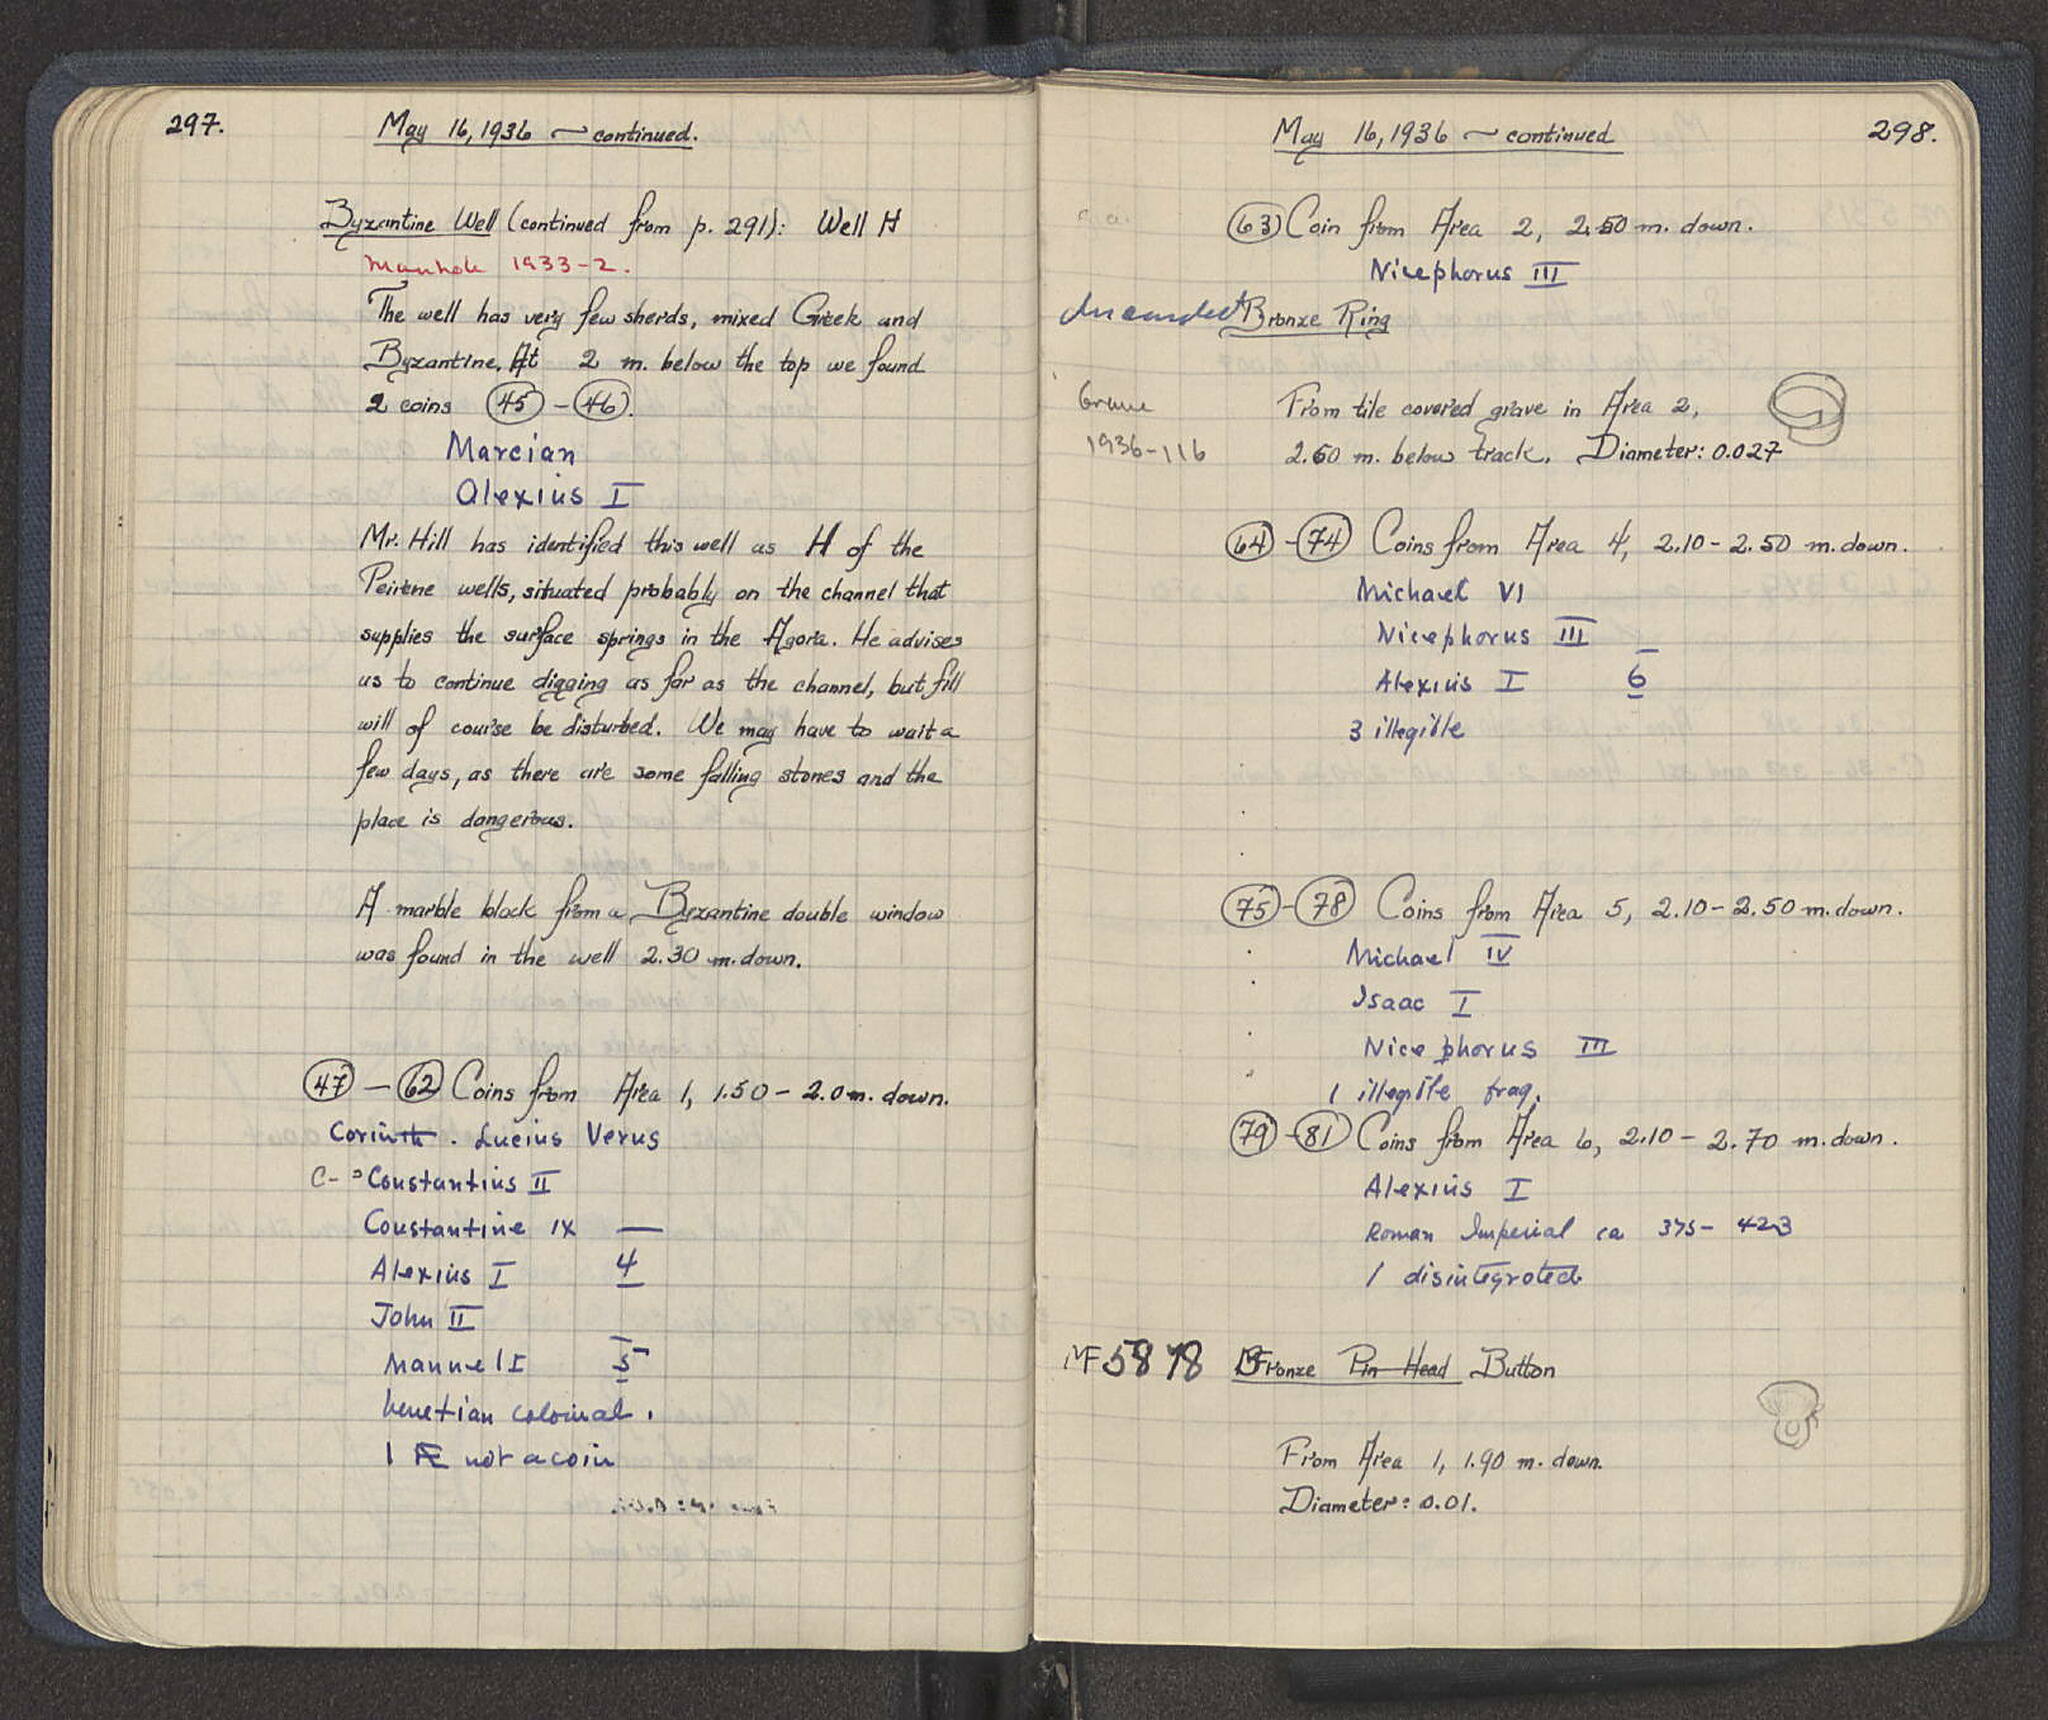 297.
May 16, 1936 — continued.
Byzantine Well (continued from p. 291): Well H
Manhole 1933-2.
The well has very few sherds, mixed Greek and
Byzantine. At 2 m. below the top we found
2 coins 45 - 46.
Marcian
Alexius I
Mr. Hill has identified this well as H of the
Peirene wells, situated probably on the channel that
supplies the surface springs in the Agora. He advises
us to continue digging as far as the channel, but fill
will of course be disturbed. We may have to wait a
few days, as there are some falling stones and the
place is dangerous.
A marble block from a Byzantine double window
was found in the well 2.30 m. down.
47 - 62 Coins from Area 1, 1.50 - 2.0 m. down.
Corinth. Lucius Verus
C- Constantius II
Constantine IX —
Alexius I 4
John II
Manuel I 5
Venetian colonial.
1 Æ not a coin
May 16, 1936 — continued
298.
63 Coin from Area 2, 2.50 m. down.
Nicephorus III
Discarded Bronze Ring
Grave
1936-116
From tile covered grave in Area 2,
2.60 m. below track. Diameter: 0.027
64 - 74 Coins from Area 4, 2.10 - 2.50 m. down.
Michael VI
Nicephorus III
Alexius I 6
3 illegible
75 - 78 Coins from Area 5, 2.10 - 2.50 m. down.
Michael IV
Isaac I
Nicephorus III
1 illegible frag.
79 - 81 Coins from Area 6, 2.10 - 2.70 m. down.
Alexius I
Roman Imperial ca 375 - 423
1 disintegrated
MF 5878 Bronze Pin Head Button
From Area 1, 1.90 m. down.
Diameter: 0.01.